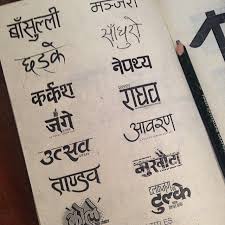 बाँसुल्ली
छड्के
कर्कश
जंगे
उत्सव
ताण्डव
मञ्जरी
साँघुरो
नेपथ्य
राघव
आवरण
मुखौटा
TITLES